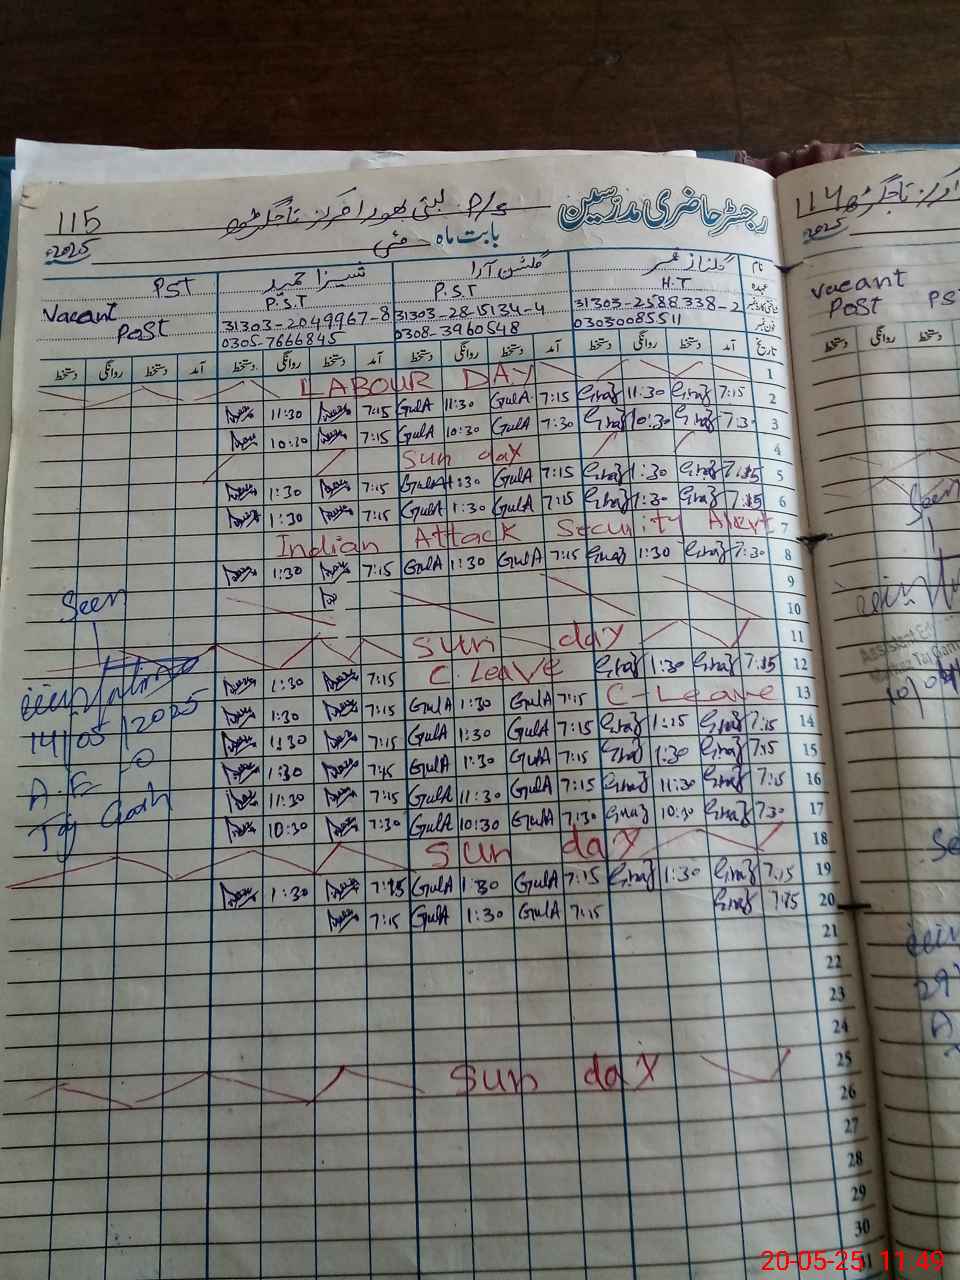 115 P/S بستی بھورا مرکز تاجگڑھ رجسٹر حاضری مدرسین
2025 بابت ماہ مئی
نام گلناز عمر گلشن آرا شہزا حمید
عہدہ H.T P.S.T P.S.T PST
Vacant Post
31303-2588338-2 31303-2815134-4 31303-2049967-8
فون نمبر 03030085511 0308-3960548 0305-7666845
تاریخ آمد دستخط روانگی دستخط آمد دستخط روانگی دستخط آمد دستخط روانگی دستخط آمد دستخط روانگی دستخط
1 LABOUR DAY
2 7:15 Gnaz 11:30 Gnaz 7:15 GulA 11:30 GulA 7:15 11:30
3 7:30 Gnaz 10:30 Gnaz 7:30 GulA 10:30 GulA 7:15 10:30
4 Sun day
5 7:15 Gnaz 1:30 Gnaz 7:15 GulA 1:30 GulA 7:15 1:30
6 7:15 Gnaz 1:30 Gnaz 7:15 GulA 1:30 GulA 7:15 1:30
7 Indian Attack Security Alert
8 7:30 Gnaz 1:30 Gnaz 7:15 GulA 1:30 GulA 7:15 1:30
9
10
11 Sun day
12 7:15 Gnaz 1:30 Gnaz C.Leave 7:15 1:30
13 C-Leave 7:15 GulA 1:30 GulA 7:15 1:30
14 7:15 Gnaz 1:15 Gnaz 7:15 GulA 1:30 GulA 7:15 1:30
15 7:15 Gnaz 1:30 Gnaz 7:15 GulA 1:30 GulA 7:15 1:30
16 7:15 Gnaz 11:30 Gnaz 7:15 GulA 11:30 GulA 7:15 11:30
17 7:30 Gnaz 10:30 Gnaz 7:30 GulA 10:30 GulA 7:30 10:30
18 Sun day
19 7:15 Gnaz 1:30 Gnaz 7:15 GulA 1:30 GulA 7:15 1:30
20 7:15 Gnaz 7:15 GulA 1:30 GulA 7:15
21
22
23
24
25 Sun day
26
27
28
29
30
Seen
14/05/2025
A.E.O
Taj Garh
114
2025
vacant
Post PS
روانگی دستخط
Seen
Assistant Ed
29
20-05-25 11:49